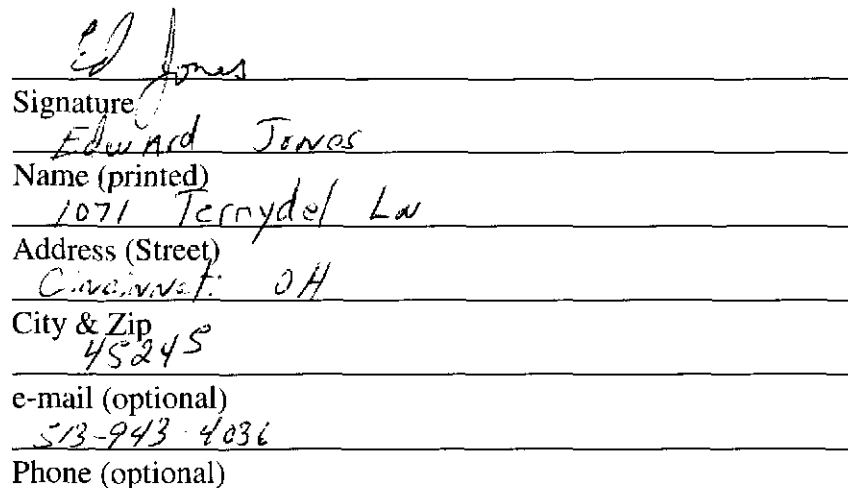 Ed Jones
Signature
Edward Jones
Name (printed)
1071 Terrydel Ln
Address (Street)
Cincinnati OH
City & Zip
45245
e-mail (optional)
513-943-4036
Phone (optional)